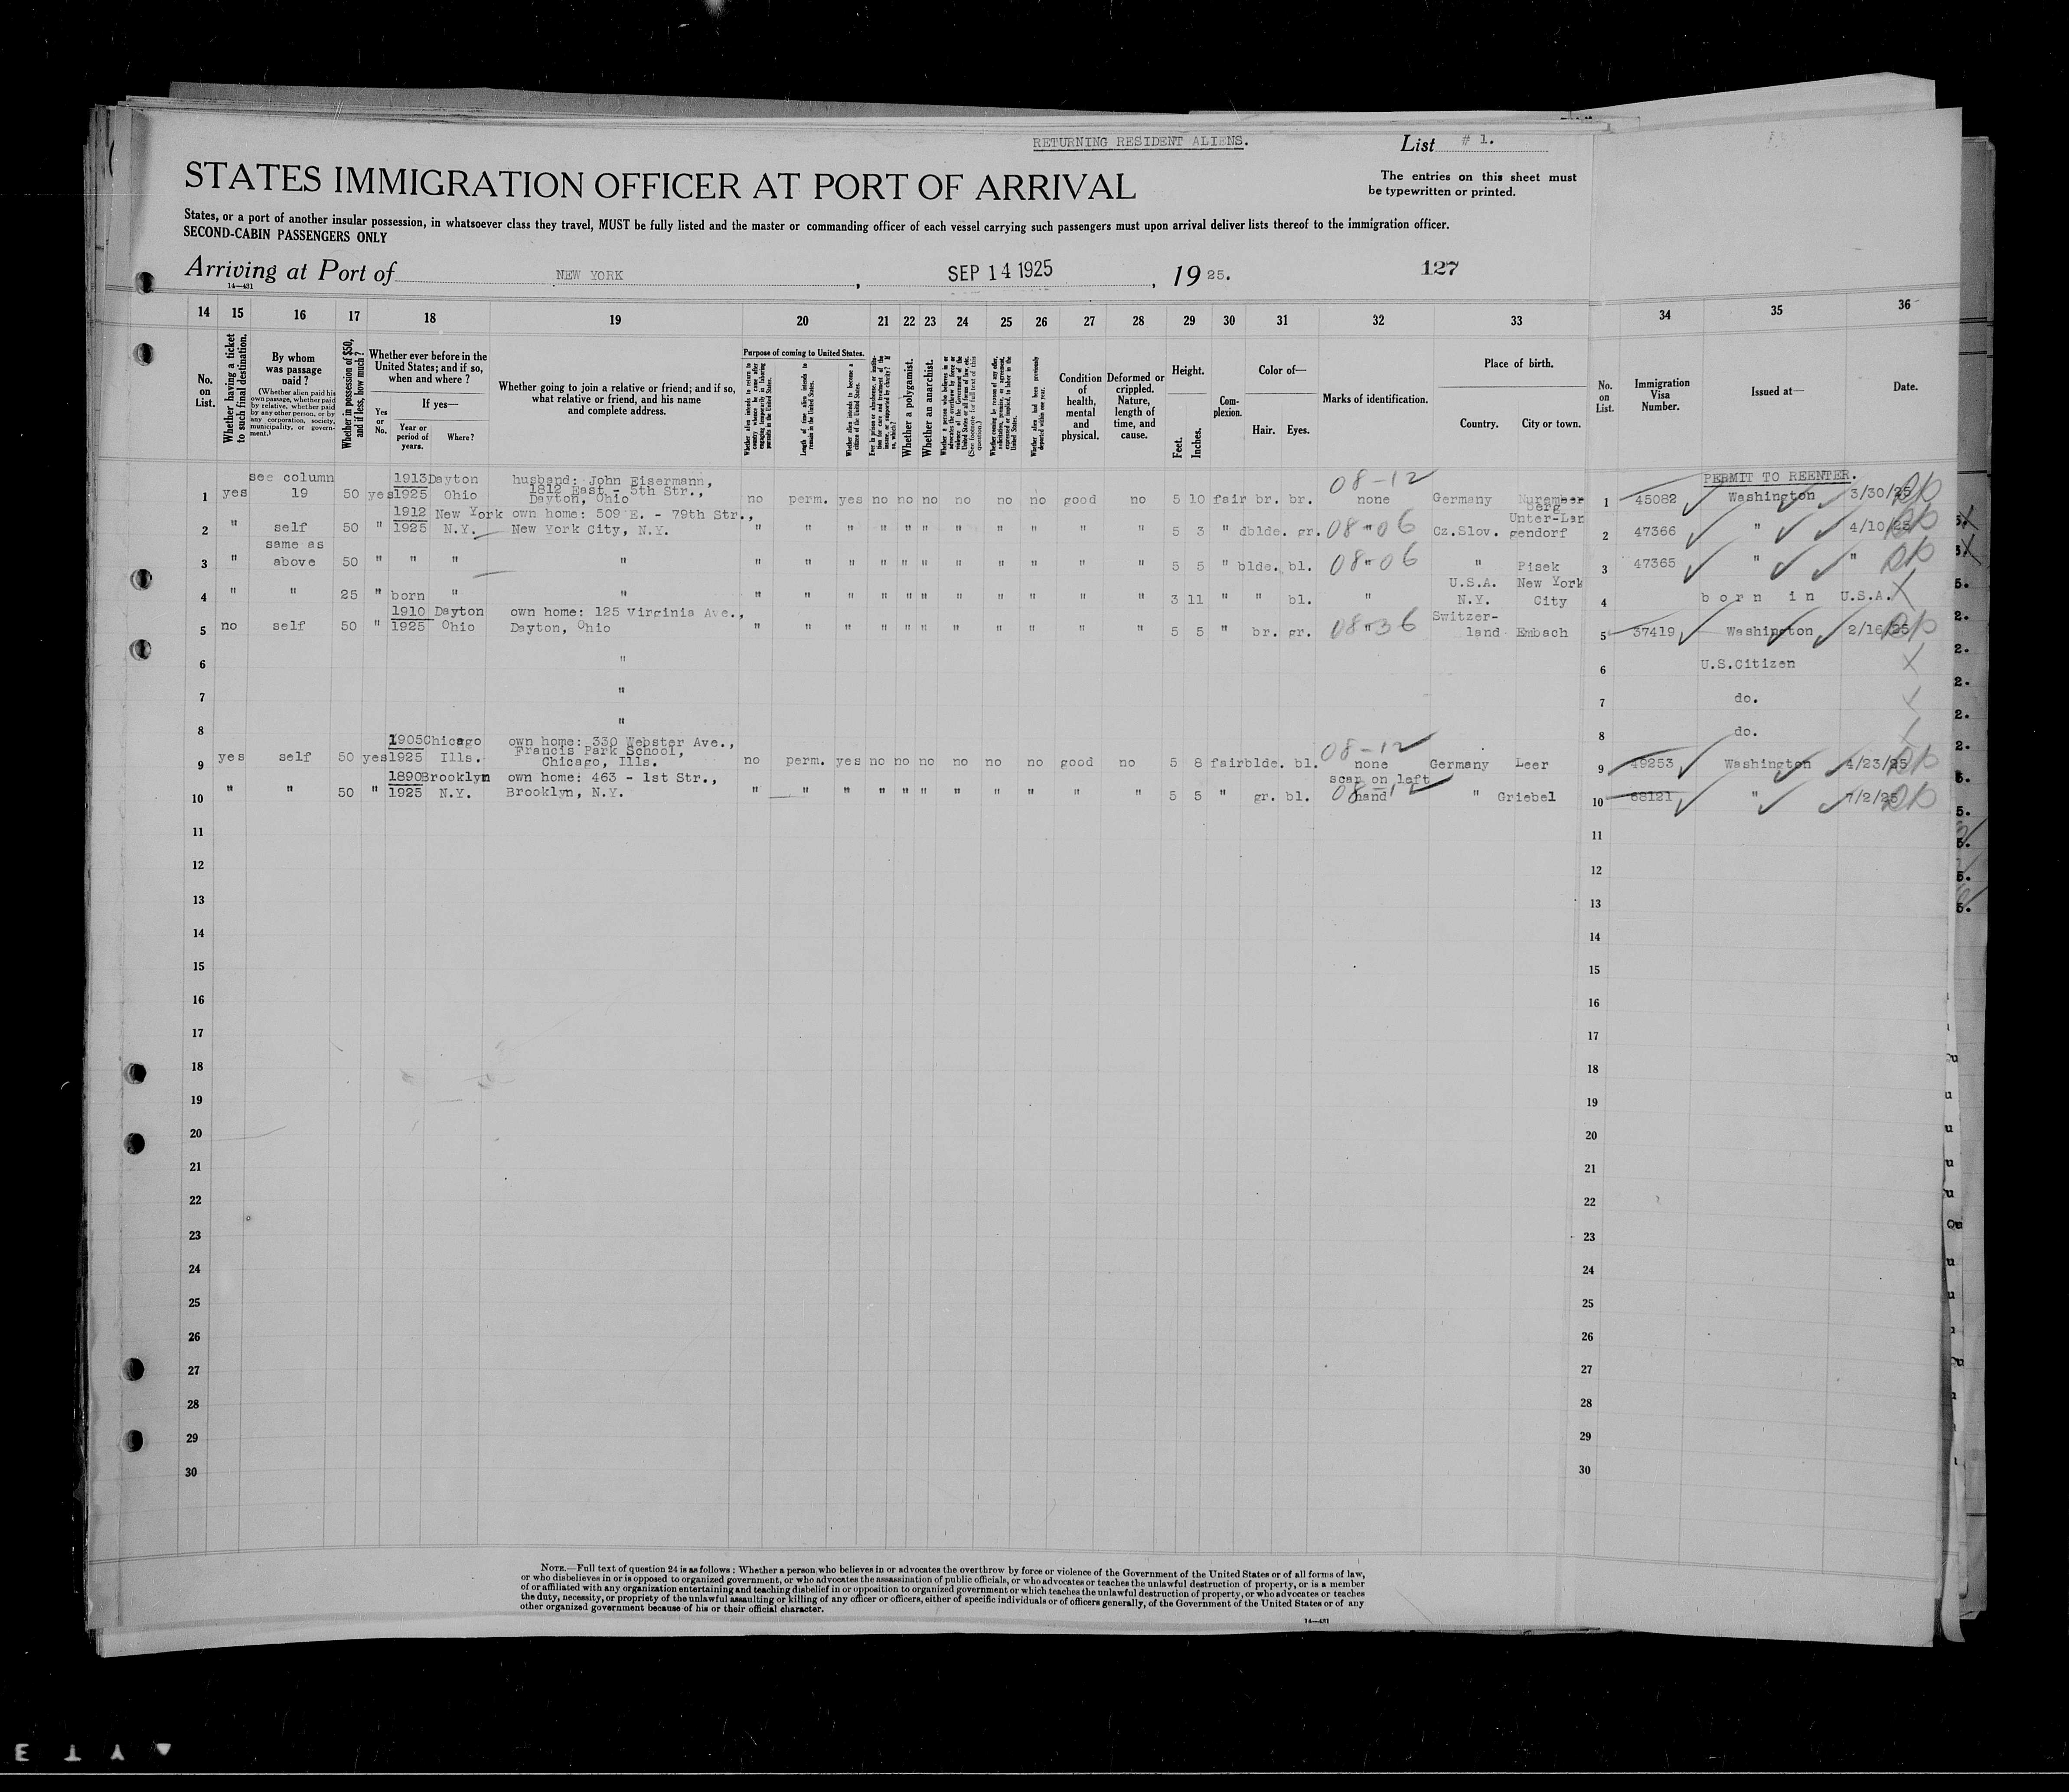 RETURNING RESIDENT ALIENS.
List # 1.
STATES IMMIGRATION OFFICER AT PORT OF ARRIVAL
The entries on this sheet must
be typewritten or printed.
States, or a port of another insular possession, in whatsoever class they travel, MUST be fully listed and the master or commanding officer of each vessel carrying such passengers must upon arrival deliver lists thereof to the immigration officer.
SECOND-CABIN PASSENGERS ONLY
Arriving at Port of NEW YORK, SEP 14 1925, 1925. 127
14—431
14 15 16 17 18 19 20 21 22 23 24 25 26 27 28 29 30 31 32 33 34 35 36
No. on List.
Whether having a ticket to such final destination.
By whom was passage paid?
(Whether alien paid his own passage, whether paid by relative, whether paid by any other person, or by any corporation, society, municipality, or government.)
Whether in possession of $50, and if less, how much?
Whether ever before in the United States; and if so, when and where?
Yes or No.
If yes—
Year or period of years.
Where?
Whether going to join a relative or friend; and if so, what relative or friend, and his name and complete address.
Purpose of coming to United States.
Whether alien intends to return to country whence he came after engaging temporarily in laboring pursuits in the United States.
Length of time alien intends to remain in the United States.
Whether alien intends to become a citizen of the United States.
Ever in prison or almshouse, or institution for care and treatment of the insane, or supported by charity? If so, which?
Whether a polygamist.
Whether an anarchist.
Whether a person who believes in or advocates the overthrow by force or violence of the Government of the United States or all forms of law, etc. (See footnote for full text of this question.)
Whether coming by reason of any offer, solicitation, promise, or agreement, expressed or implied, to labor in the United States.
Whether alien had been previously deported within one year.
Condition of health, mental and physical.
Deformed or crippled. Nature, length of time, and cause.
Height.
Feet. Inches.
Complexion.
Color of—
Hair. Eyes.
Marks of identification.
Place of birth.
Country. City or town.
No. on List.
Immigration Visa Number.
Issued at—
Date.
PERMIT TO REENTER.
see column 1913 Dayton husband: John Eisermann, 08-12
1 yes 19 50 yes 1925 Ohio 1812 East - 5th Str., Dayton, Ohio no perm. yes no no no no no no good no 5 10 fair br. br. none Germany Nuremberg 1 45082 Washington 3/30/25
1912 New York own home: 509 E. - 79th Str., Unter-Lan
2 " self 50 " 1925 N.Y. New York City, N.Y. " " " " " " " " " " " 5 3 " dblde. gr. 08-06 " Cz.Slov. gendorf 2 47366 " 4/10/25
same as
3 " above 50 " " " " " " " " " " " " " " " 5 5 " blde. bl. 08-06 " " Pisek 3 47365 " "
U.S.A. New York
4 " " 25 " born " " " " " " " " " " " " " 3 11 " " bl. " N.Y. City 4 born in U.S.A.
1910 Dayton own home: 125 Virginia Ave., Switzer-
5 no self 50 " 1925 Ohio Dayton, Ohio " " " " " " " " " " " 5 5 " br. gr. 08-36 " land Embach 5 37419 Washington 2/16/25
6 " 6 U.S.Citizen
7 " 7 do.
8 " 8 do.
1905 Chicago own home: 330 Webster Ave., 08-12
9 yes self 50 yes 1925 Ills. Francis Park School, Chicago, Ills. no perm. yes no no no no no no good no 5 8 fair blde. bl. none Germany Leer 9 49253 Washington 4/23/25
1890 Brooklyn own home: 463 - 1st Str., scar on left
10 " " 50 " 1925 N.Y. Brooklyn, N.Y. " " " " " " " " " " " 5 5 " gr. bl. 08-12 hand " Griebel 10 68121 " 7/2/25
11 11
12 12
13 13
14 14
15 15
16 16
17 17
18 18
19 19
20 20
21 21
22 22
23 23
24 24
25 25
26 26
27 27
28 28
29 29
30 30
NOTE.—Full text of question 24 is as follows: Whether a person who believes in or advocates the overthrow by force or violence of the Government of the United States or of all forms of law,
or who disbelieves in or is opposed to organized government, or who advocates the assassination of public officials, or who advocates or teaches the unlawful destruction of property, or is a member
of or affiliated with any organization entertaining and teaching disbelief in or opposition to organized government or which teaches the unlawful destruction of property, or who advocates or teaches
the duty, necessity, or propriety of the unlawful assaulting or killing of any officer or officers, either of specific individuals or of officers generally, of the Government of the United States or of any
other organized government because of his or their official character.
14—431